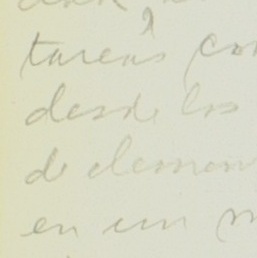 tareas con
desde los
de demon
en un m